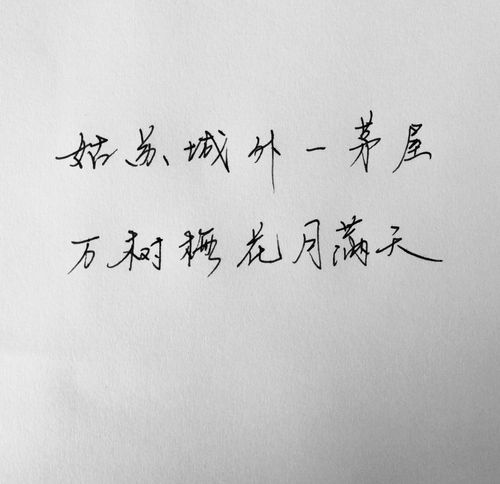 姑苏城外一茅屋
万树梅花月满天